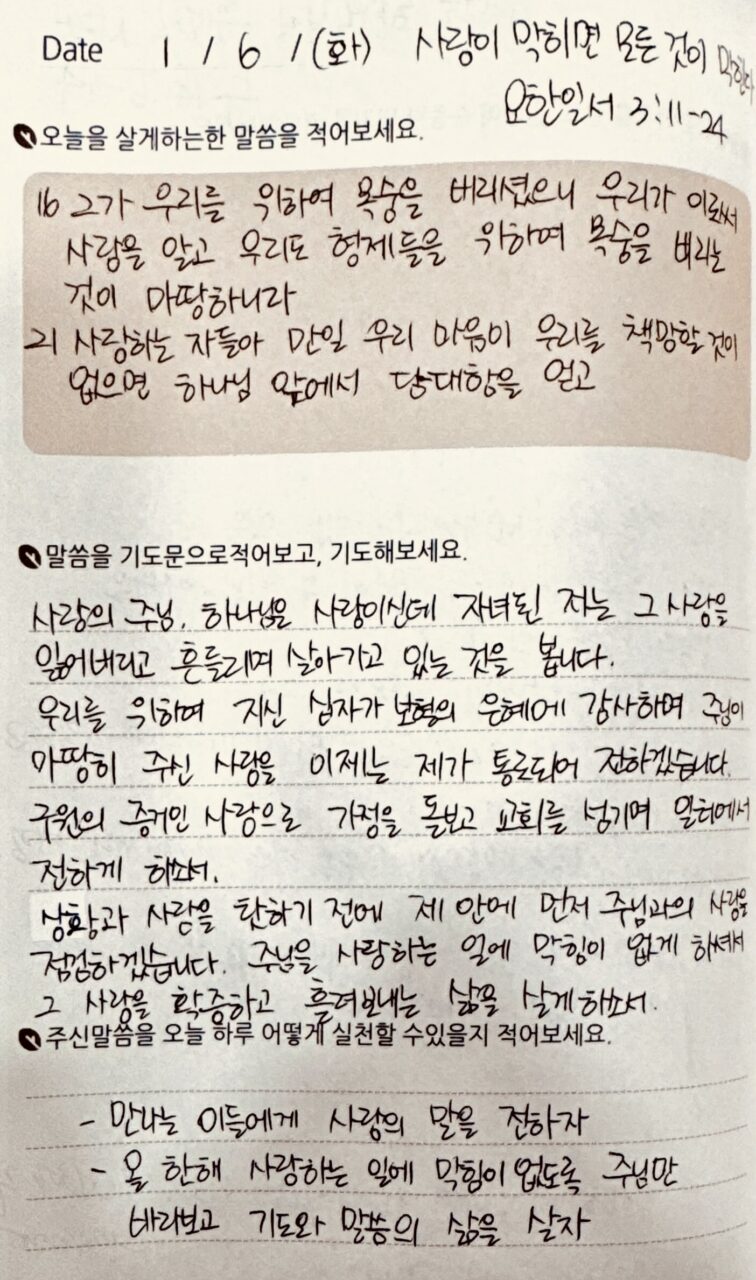 Date 1 / 6 / (화) 사랑이 막히면 모든 것이 막힌다
요한일서 3:11-24
오늘을 살게하는한 말씀을 적어보세요.
16 그가 우리를 위하여 목숨을 버리셨으니 우리가 이로써
사랑을 알고 우리도 형제들을 위하여 목숨을 버리는
것이 마땅하니라
21 사랑하는 자들아 만일 우리 마음이 우리를 책망할 것이
없으면 하나님 앞에서 담대함을 얻고
말씀을 기도문으로적어보고, 기도해보세요.
사랑의 주님. 하나님은 사랑이신데 자녀된 저는 그 사랑을
잃어버리고 흔들리며 살아가고 있는 것을 봅니다.
우리를 위하여 지신 십자가 보혈의 은혜에 감사하며 주님이
마땅히 주신 사랑을 이제는 제가 통로되어 전하겠습니다.
구원의 증거인 사랑으로 가정을 돌보고 교회를 섬기며 일터에서
전하게 하소서.
상황과 사람을 탓하기 전에 제 안에 먼저 주님과의 사랑을
점검하겠습니다. 주님을 사랑하는 일에 막힘이 없게 하셔서
그 사랑을 확증하고 흘려보내는 삶을 살게하소서.
주신말씀을 오늘 하루 어떻게 실천할 수있을지 적어보세요.
- 만나는 이들에게 사랑의 말을 전하자
- 올 한해 사랑하는 일에 막힘이 없도록 주님만
바라보고 기도와 말씀의 삶을 살자